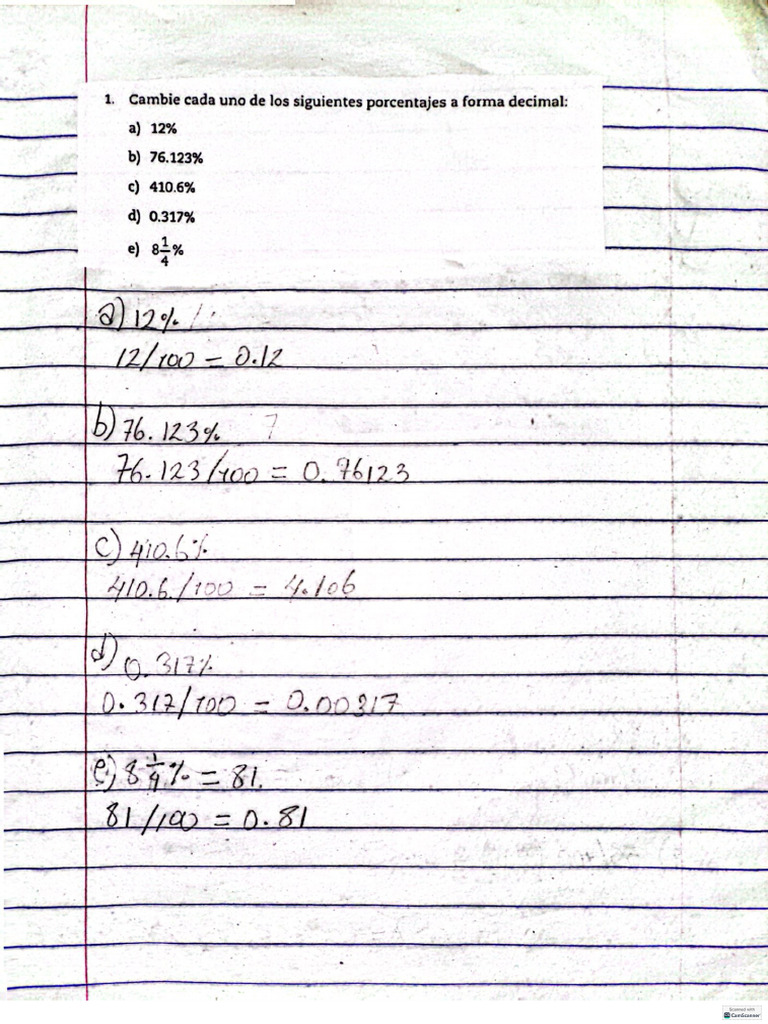 1. Cambie cada uno de los siguientes porcentajes a forma decimal:
a) 12%
b) 76.123%
c) 410.6%
d) 0.317%
e) 8 1/4 %
a) 12%
12/100 = 0.12
b) 76.123%
76.123/100 = 0.76123
c) 410.6%
410.6/100 = 4.106
d) 0.317%
0.317/100 = 0.00317
e) 8 1/4 % = 81.
81/100 = 0.81
Scanned with
CamScanner